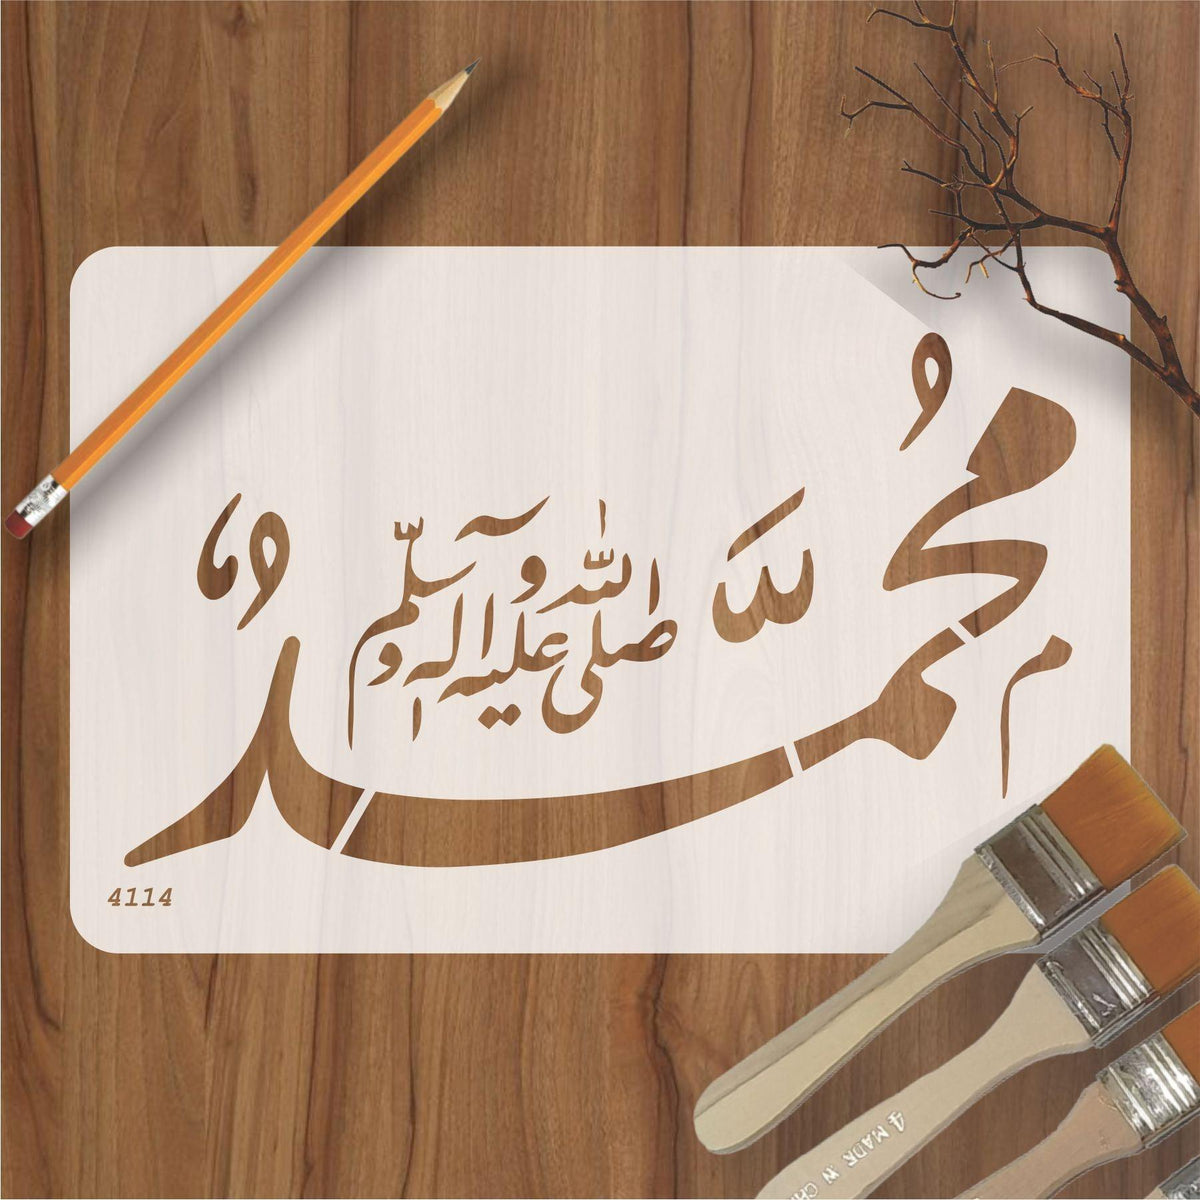 مُحَمَّدٌ
صلى الله عليه وآله وسلم
4114
4 MADE IN CHI